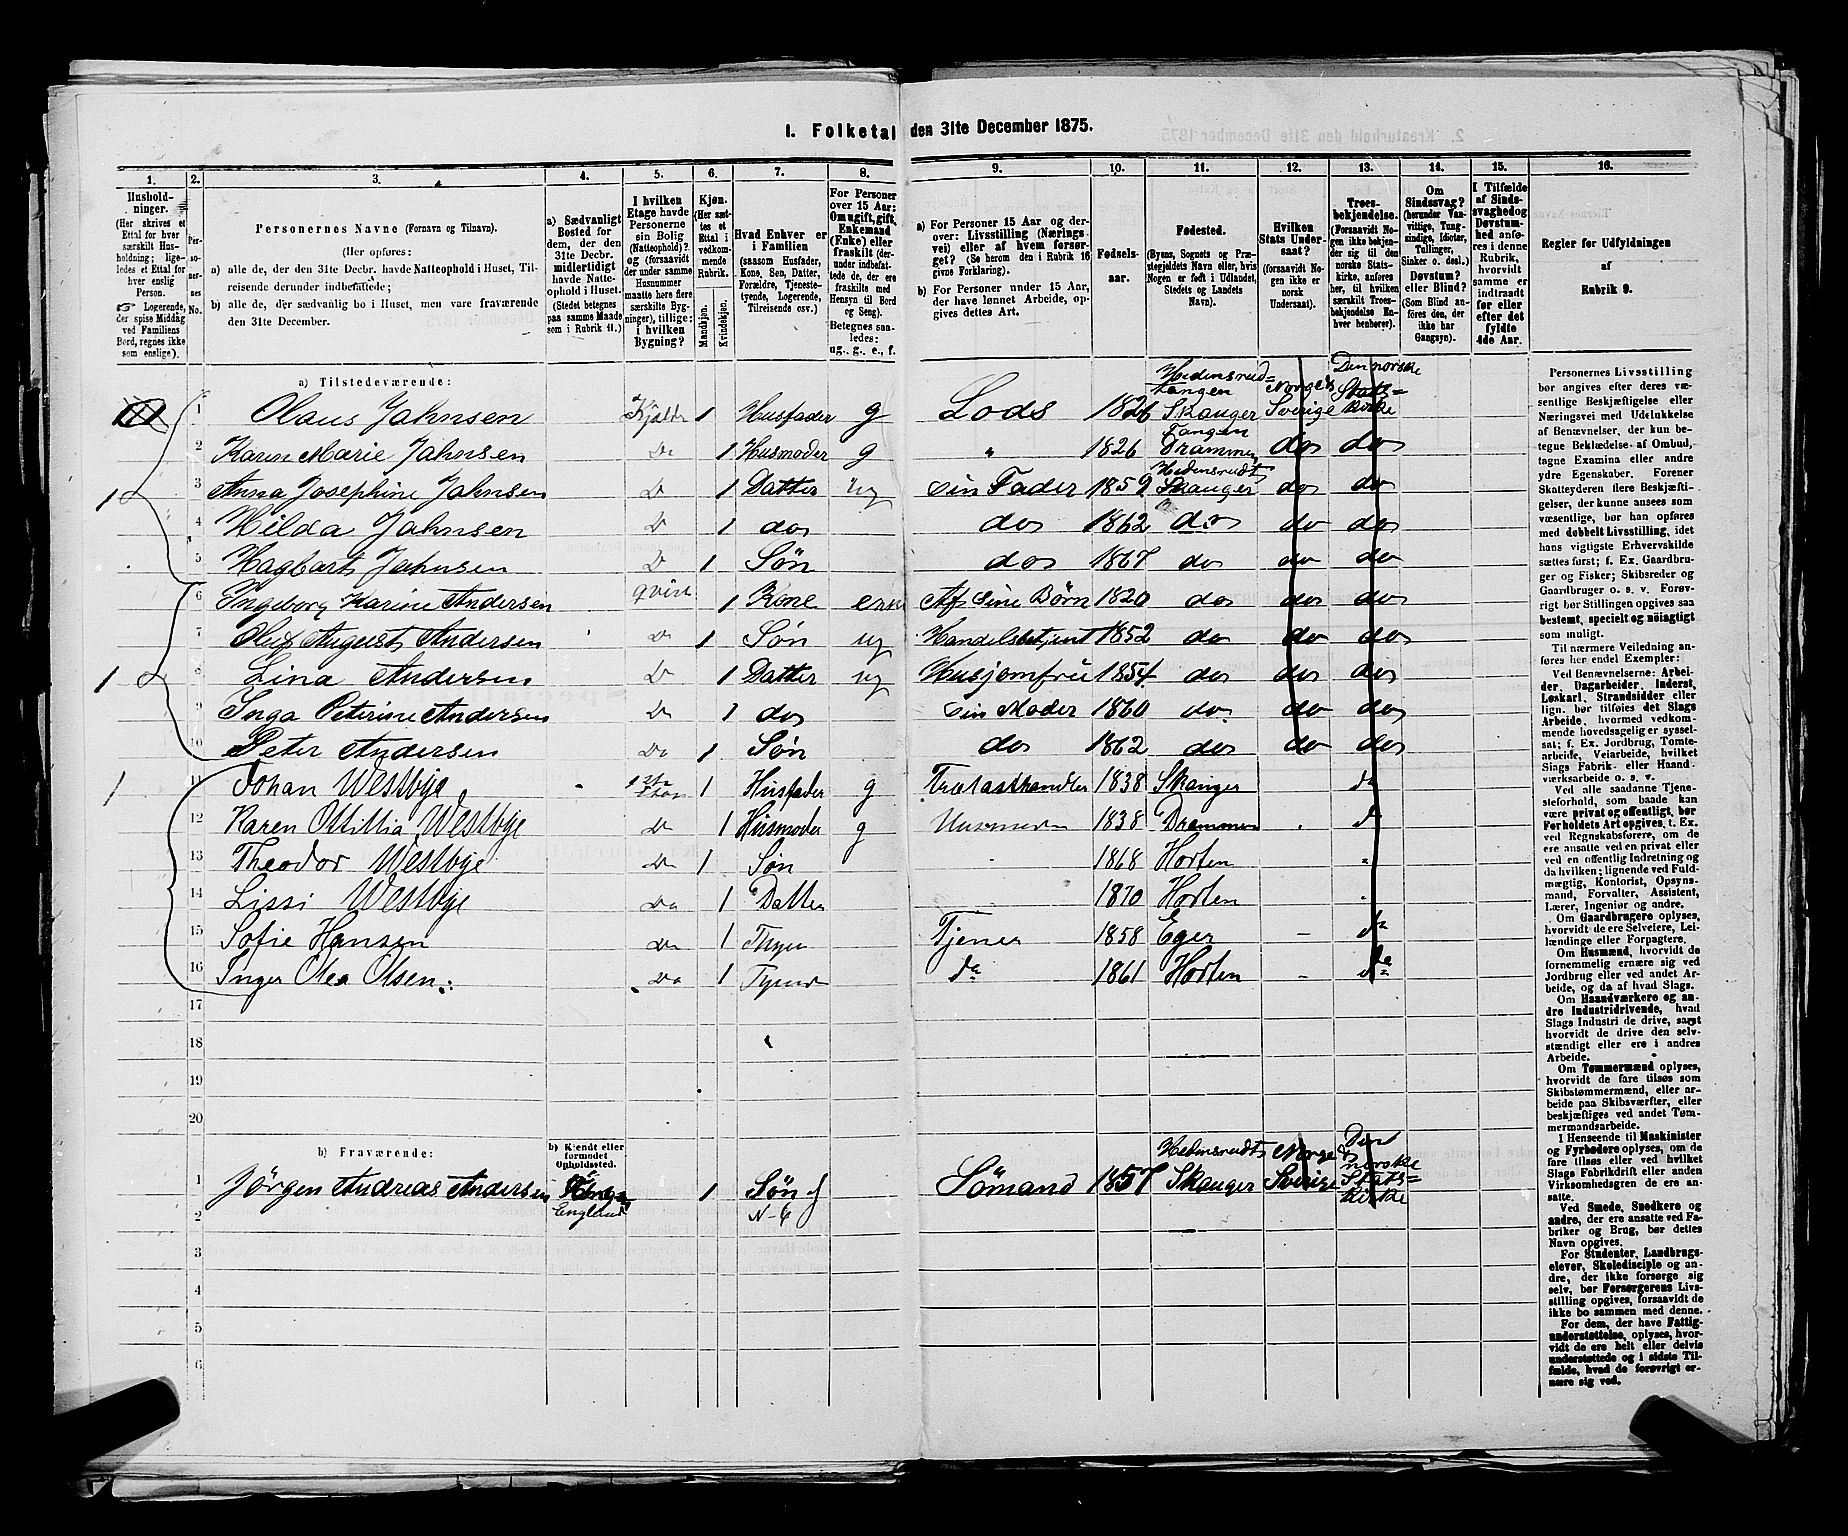 I. Folketal den 31te December 1875.
1. 2. 3. 4. 5. 6. 7. 8. 9. 10. 11. 12. 13. 14. 15. 16.
Husholdninger. (Her skrives et Ettal for hver særskilt Husholdning; ligeledes et Ettal for hver enslig Person. ☞ Logerende, der spise Middag ved Familiens Bord, regnes ikke som enslige).
Personernes No.
Personernes Navne (Fornavn og Tilnavn).
(Her opføres:
a) alle de, der den 31te Decbr. havde Natteophold i Huset, Tilreisende derunder indbefattede;
b) alle de, der sædvanlig bo i Huset, men vare fraværende den 31te December.
a) Sædvanligt Bosted for dem, der den 31te Decbr. midlertidigt havde Natteophold i Huset. (Stedet betegnes paa samme Maade som i Rubrik 11.)
I hvilken Etage havde Personerne sin Bolig (Natteophold)? og (forsaavidt der under samme Husnummer maatte høre flere særskilte Bygninger), tillige: i hvilken Bygning?
Kjøn. (Her sættes et Ettal i vedkommende Rubrik.
Mandkjøn. Kvindekjøn.
Hvad Enhver er i Familien (saasom Husfader, Kone, Søn, Datter, Forældre, Tjenestetyende, Logerende, Tilreisende osv.)
For Personer over 15 Aar: Om ugift, gift, Enkemand (Enke) eller fraskilt (derunder indbefattede de, der ere fraskilte med Hensyn til Bord og Seng). Betegnes saaledes: ug., g., e., f.
a) For Personer 15 Aar og derover: Livsstilling (Næringsvei) eller af hvem forsørget? (Se herom den i Rubrik 16 givne Forklaring).
b) For Personer under 15 Aar, der have lønnet Arbeide, opgives dettes Art.
Fødselsaar.
Fødested. (Byens, Sognets og Præstegjeldets Navn eller, hvis Nogen er født i Udlandet, Stedets og Landets Navn).
Hvilken Stats Undersaat? (forsaavidt Nogen ikke er norsk Undersaat).
Troesbekjendelse. (Forsaavidt Nogen ikke bekjender sig til den norske Statskirke, anføres her, til hvilken særskilt Troesbekjendelse Enhver henhører).
Om Sindssvag? (herunder Vanvittige, Tungsindige, Idioter, Tullinger, Sinker o. desl.) Døvstum? eller Blind? (Som Blind anføres den, der ikke har Gangsyn).
I Tilfælde af Sindssvaghed og Døvstumhed anføres i denne Rubrik, hvorvidt samme er indtraadt før eller efter det fyldte 4de Aar.
Regler for Udfyldningen af Rubrik 9.
a) Tilstedeværende:
1 Olaus Jahnsen Kjæld 1 Husfader g Lods 1826 Hedensrud=tangen Skauger Norge Sverige Den norske Stats=kirke
2 Karen Marie Jahnsen Do 1 Husmoder g " 1826 Tangen Drammen do do
1 3 Anna Josephine Jahnsen D 1 Datter ug sin Fader 1859 Hedensrudt Skauger do do
4 Hilda Jahnsen D 1 do do 1862 do do do
5 Hagbart Jahnsen D 1 Søn do 1867 do do do
6 Ingeborg Karine Andersen qvist 1 Kone enke Af sine Børn 1820 do do do
7 Oluf August Andersen Do 1 Søn ug Handelsbetjent 1852 do do do
1 8 Lina Andersen D 1 Datter ug Husjomfru 1854 do do do
9 Inga Peterine Andersen Do 1 do sin Moder 1860 do do do
10 Peter Andersen Do 1 Søn do 1862 do do do
1 11 Johan Westbye 1 Husfader g Trælasthandler 1838 Skauger do
12 Karen Ottillia Westbye Do 1 Husmoder g 1838 Drammen do
13 Theodor Westbye Do 1 Søn 1868 Horten
14 Lissi Westbye Do 1 Datter 1870 Horten
15 Sofie Hansen Do 1 Tjener 1858 Eger do
16 Inger Olea Olsen Do 1 Tyende do 1861 Horten do
17
18
19
20
b) Fraværende:
b) Kjendt eller formodet Opholdssted.
1 Jörgen Andreas Andersen England 1 Søn af N-6 Sømand 1857 Hedensrudt Skauger Norge Sverige Den norske Stats=kirke
2
3
4
5
6
Personernes Livsstilling bør angives efter deres væsentlige Beskjæftigelse eller Næringsvei med Udelukkelse af Benævnelser, der kun betegne Beklædelse af Ombud, tagne Examina eller andre ydre Egenskaber. Forener Skatteyderen flere Beskjæftigelser, der kunne ansees som væsentlige, bør han opføres med dobbelt Livsstilling, idet hans vigtigste Erhvervskilde sættes først; f. Ex. Gaardbruger og Fisker; Skibsreder og Gaardbruger o. s. v. Forøvrigt bør Stillingen opgives saa bestemt, specielt og nøiagtigt som muligt.
Til nærmere Veiledning anføres her endel Exempler:
Ved Benævnelserne: Arbeider, Dagarbeider, Inderst, Løskarl, Strandsidder eller lign. bør tilføies det Slags Arbeide, hvormed vedkommende hovedsagelig er sysselsat; f. Ex. Jordbrug, Tomtearbeide, Veiarbeide, hvilket Slags Fabrik- eller Haandværksarbeide o. s. v.
Ved alle saadanne Tjenesteforhold, som baade kan være privat og offentligt, bør Forholdets Art opgives, t. Ex. ved Regnskabsførere, om de ere ansatte ved en privat eller ved en offentlig Indretning og da hvilken; lignende ved Fuldmægtig, Kontorist, Opsynsmand, Forvalter, Assistent, Lærer, Ingeniør og andre.
Om Gaardbrugere oplyses, hvorvidt de ere Selveiere, Leilændinge eller Forpagtere.
Om Husmænd, hvorvidt de fornemmelig ernære sig ved Jordbrug eller ved andet Arbeide, og da af hvad Slags.
Om Haandværkere og andre Industridrivende, hvad Slags Industri de drive, samt hvorvidt de drive den selvstændigt eller ere i andres Arbeide.
Om Tømmermænd oplyses, hvorvidt de fare tilsøs som Skibstømmermænd, eller arbeide paa Skibsværfter, eller beskjæftiges ved andet Tømmermandsarbeide.
I Henseende til Maskinister og Fyrbødere oplyses, om de fare tilsøs eller ved hvilket Slags Fabrikdrift eller anden Virksomhedsgren de ere ansatte.
Ved Smede, Snedkere og andre, der ere ansatte ved Fabriker og Brug, bør dettes Navn opgives.
For Studenter, Landbrugselever, Skoledisciple og andre, der ikke forsørge sig selv, bør Forsørgerens Livsstilling opgives, forsaavidt de ikke bo sammen med denne.
For dem, der have Fattigunderstøttelse, oplyses, hvorvidt de ere helt eller delvis understøttede og i sidste Tilfælde, hvad de forøvrigt ernære sig ved.